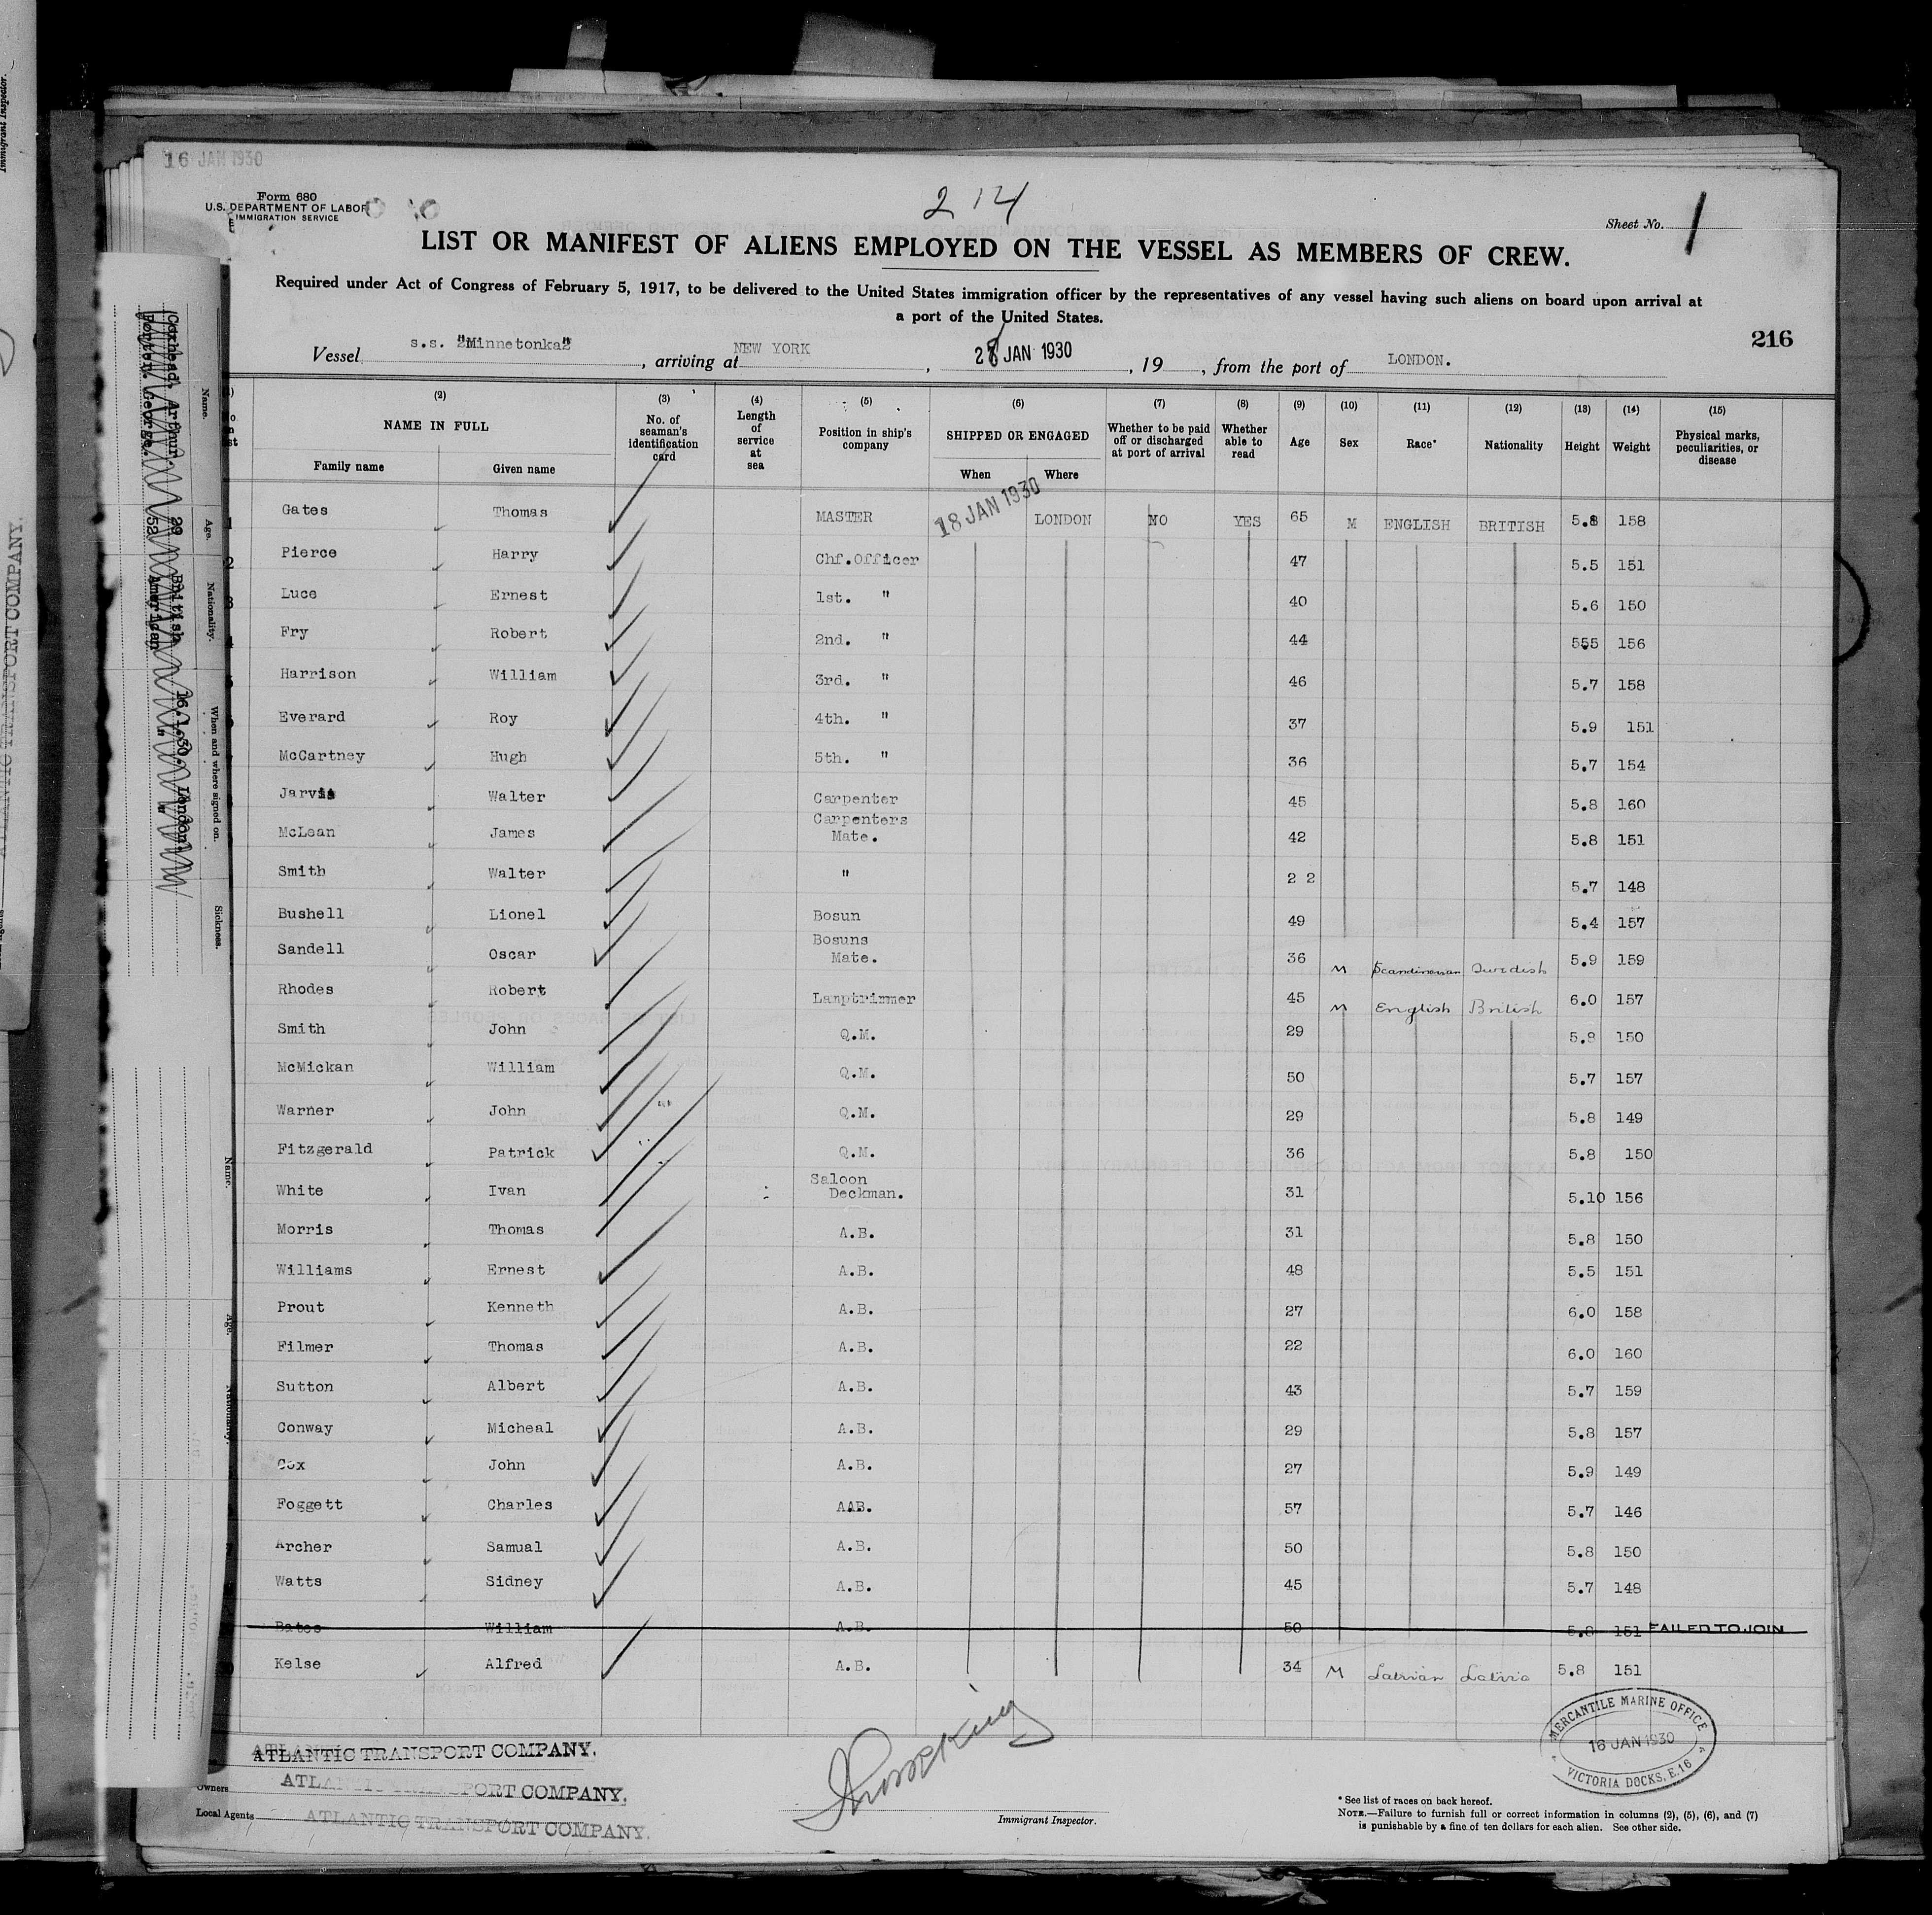 16 JAN 1930
Form 680
U.S. DEPARTMENT OF LABOR
IMMIGRATION SERVICE
214
Sheet No. 1
LIST OR MANIFEST OF ALIENS EMPLOYED ON THE VESSEL AS MEMBERS OF CREW.
Required under Act of Congress of February 5, 1917, to be delivered to the United States immigration officer by the representatives of any vessel having such aliens on board upon arrival at
a port of the United States.
216
Vessel s.s. "Minnetonka" , arriving at NEW YORK , JAN 1930 , 19 , from the port of LONDON.
(2) (3) (4) (5) (6) (7) (8) (9) (10) (11) (12) (13) (14) (15)
NAME IN FULL No. of seaman's identification card Length of service at sea Position in ship's company SHIPPED OR ENGAGED Whether to be paid off or discharged at port of arrival Whether able to read Age Sex Race* Nationality Height Weight Physical marks, peculiarities, or disease
Family name Given name When Where
1 Gates Thomas MASTER 18 JAN 1930 LONDON NO YES 65 M ENGLISH BRITISH 5.8 158
2 Pierce Harry Chf.Officer 47 5.5 151
3 Luce Ernest 1st. " 40 5.6 150
4 Fry Robert 2nd. " 44 5.5 156
5 Harrison William 3rd. " 46 5.7 158
6 Everard Roy 4th. " 37 5.9 151
7 McCartney Hugh 5th. " 36 5.7 154
Jarvis Walter Carpenter 45 5.8 160
McLean James Carpenters Mate. 42 5.8 151
Smith Walter " 2 2 5.7 148
Bushell Lionel Bosun 49 5.4 157
Sandell Oscar Bosuns Mate. 36 M Scandinavian Swedish 5.9 159
Rhodes Robert Lamptrimmer 45 M English British 6.0 157
Smith John Q.M. 29 5.8 150
McMickan William Q.M. 50 5.7 157
Warner John Q.M. 29 5.8 149
Fitzgerald Patrick Q.M. 36 5.8 150
White Ivan Saloon Deckman. 31 5.10 156
Morris Thomas A.B. 31 5.8 150
Williams Ernest A.B. 48 5.5 151
Prout Kenneth A.B. 27 6.0 158
Filmer Thomas A.B. 22 6.0 160
Sutton Albert A.B. 43 5.7 159
Conway Micheal A.B. 29 5.8 157
Cox John A.B. 27 5.9 149
Foggett Charles AAB. 57 5.7 146
Archer Samual A.B. 50 5.8 150
Watts Sidney A.B. 45 5.7 148
Bates William A.B. 50 5.8 151 FAILED TO JOIN
Kelse Alfred A.B. 34 M Latvian Latvia 5.8 151
ATLANTIC TRANSPORT COMPANY.
Owners ATLANTIC TRANSPORT COMPANY.
Local Agents ATLANTIC TRANSPORT COMPANY.
Immigrant Inspector.
MERCANTILE MARINE OFFICE
16 JAN 1930
VICTORIA DOCKS, E.16
* See list of races on back hereof.
NOTE.—Failure to furnish full or correct information in columns (2), (5), (6), and (7)
is punishable by a fine of ten dollars for each alien. See other side.
Name. Age. Nationality. When and where signed on. Sickness.
Coxhead. Arthur. 29 British 16.1.30. London.
Porter. George. 52 American " "
Name. Age. Nationality.
Immigrant Inspector.
ATLANTIC TRANSPORT COMPANY.